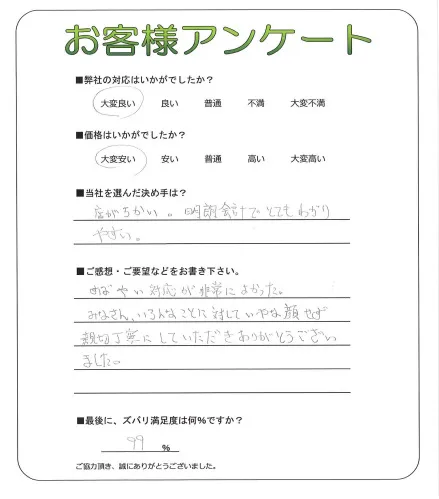 お客様アンケート
■弊社の対応はいかがでしたか？
大変良い 良い 普通 不満 大変不満
■価格はいかがでしたか？
大変安い 安い 普通 高い 大変高い
■当社を選んだ決め手は？
店がちかい。明朗会計でとてもわかり
やすい。
■ご感想・ご要望などをお書き下さい。
すばやい対応が非常によかった。
みなさん、いろんなことに対していやな顔せず
親切丁寧にしていただきありがとうござい
ました。
■最後に、ズバリ満足度は何%ですか？
99 %
ご協力頂き、誠にありがとうございました。